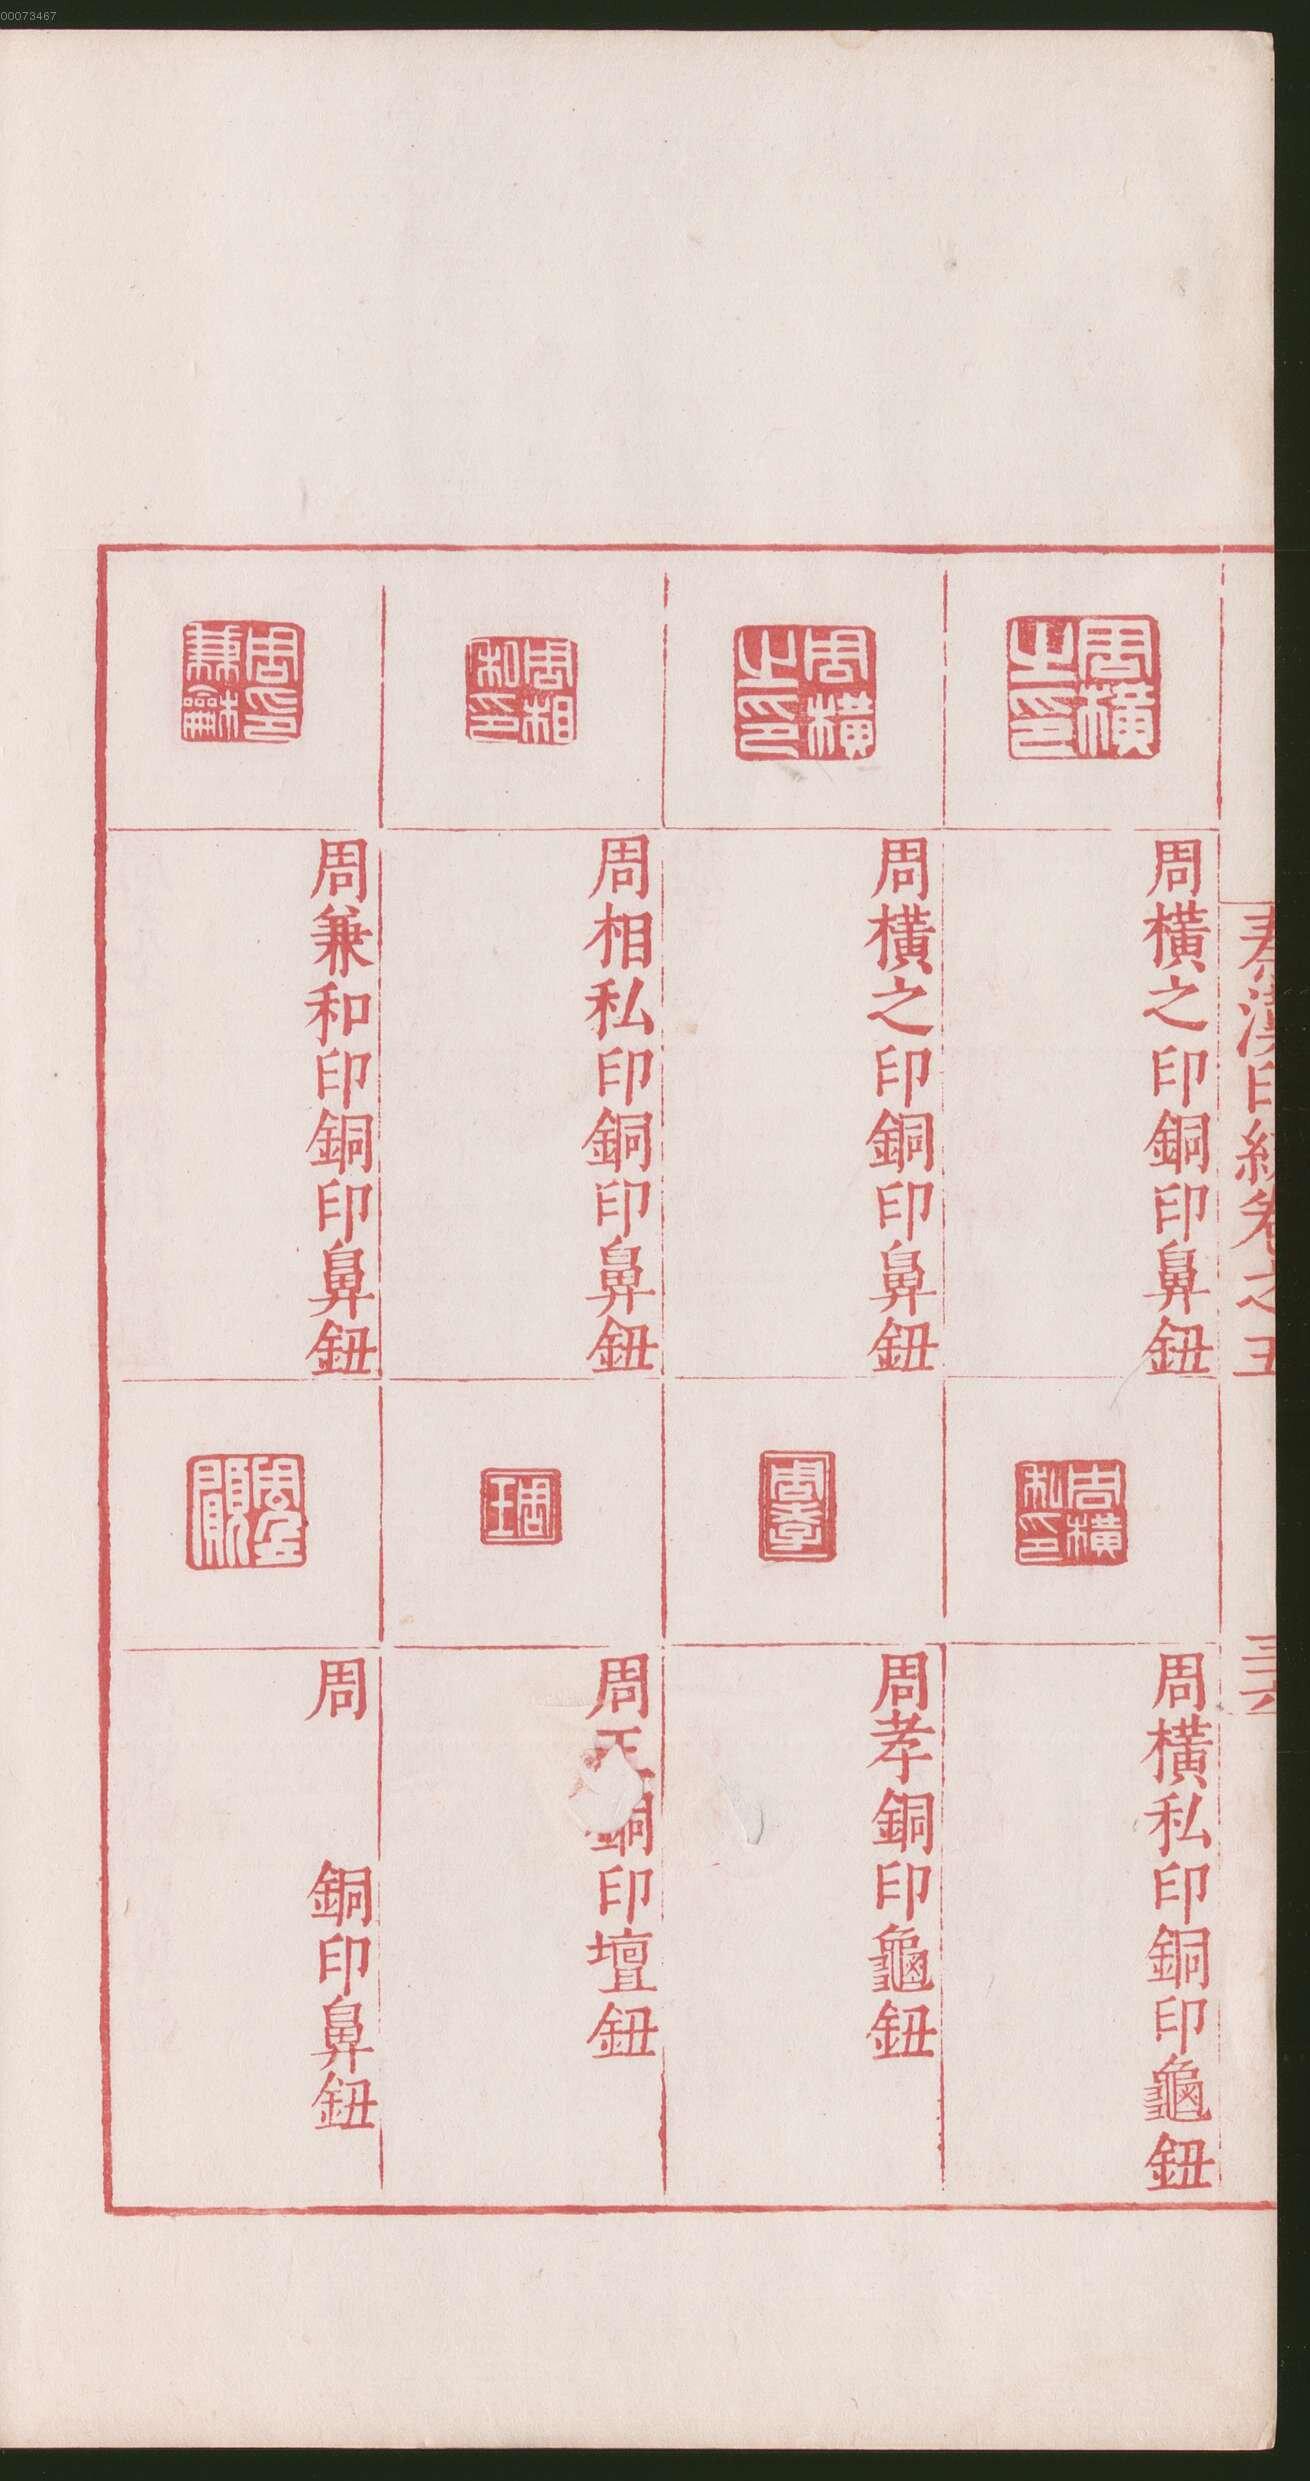 00073467
秦漢印統卷之五
三六
周橫之印
周橫之印銅印鼻鈕
周橫之印
周橫之印銅印鼻鈕
周相私印
周相私印銅印鼻鈕
周印兼龢
周兼和印銅印鼻鈕
周橫私印
周橫私印銅印龜鈕
周孝
周孝銅印龜鈕
周王
周王銅印壇鈕
周
周 銅印鼻鈕